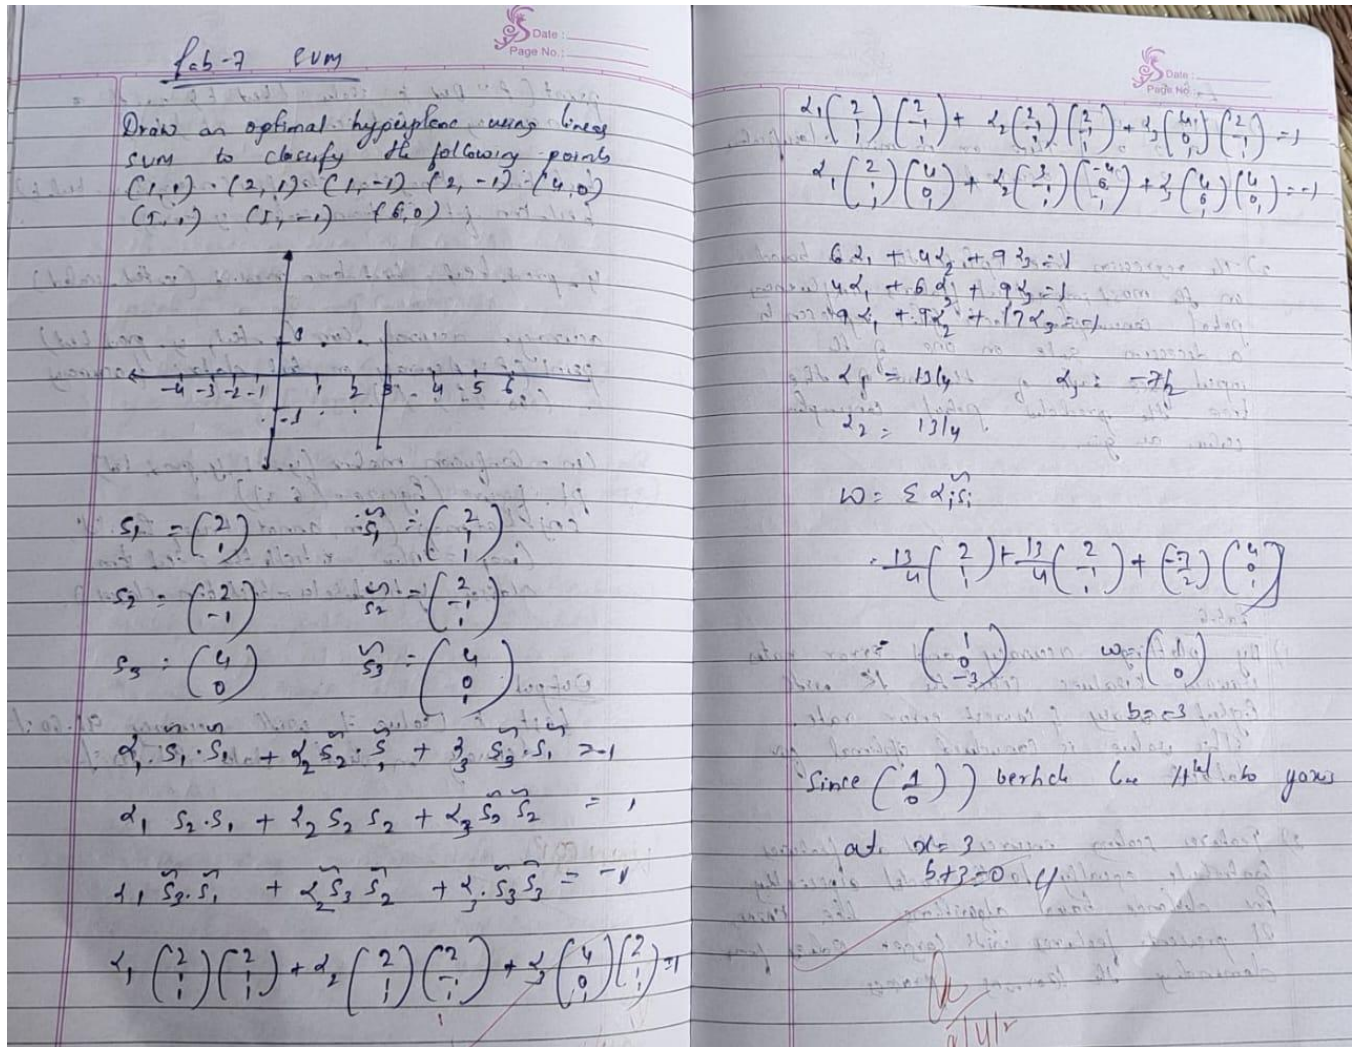 Date :
Page No. :
Lab-7 SVM
Draw an optimal hyperplane using linear
SVM to classify the following points
(1,1) (2,1) (1,-1) (2,-1) (4,0)
(5,1) (5,-1) (6,0)
-4 -3 -2 -1 1 2 3 4 5 6
-1
S1 = (2 1) S̃1 = (2 1 1)
S2 = (2 -1) S̃2 = (2 -1 1)
S3 = (4 0) S̃3 = (4 0 1)
α1 S̃1 · S̃1 + α2 S̃2 · S̃1 + α3 S̃3 · S̃1 = -1
α1 S2 · S1 + α2 S2 S2 + α3 S̃3 S̃2 = 1
α1 S̃3 · S̃1 + α2 S̃3 S̃2 + α3 · S̃3 S̃3 = -1
α1 (2 1 1) (2 1 1) + α2 (2 1 1) (2 -1 1) + α3 (4 0 1) (2 1 1) = 1
Date :
Page No :
α1 (2 1 1) (2 -1 1) + α2 (2 -1 1) (2 -1 1) + α3 (4 0 1) (2 -1 1) = 1
α1 (2 1 1) (4 0 1) + α2 (2 -1 1) (4 0 1) + α3 (4 0 1) (4 0 1) = -1
6α1 + 4α2 + 9α3 = 1
4α1 + 6α2 + 9α3 = 1
9α1 + 9α2 + 17α3 = -1
α1 = 13/4 α3 = -7/2
α2 = 13/4
w = Σ αi s̃i
= 13/4 (2 1 1) + 13/4 (2 -1 1) + (-7/2) (4 0 1)
= (1 0 -3) w = (1 0)
b = -3
Since (1 0) line to y axis
at x = 3
b+3=0